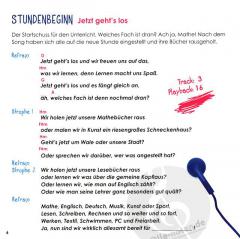 STUNDENBEGINN Jetzt geht's los
Der Startschuss für den Unterricht. Welches Fach ist dran? Ach ja, Mathe! Nach dem
Song haben sich alle auf die neue Stunde eingestellt und ihre Bücher rausgeholt.
Refrain
Jetzt geht's los und wir freuen uns auf das,
was wir lernen, denn lernen macht uns Spaß.
Jetzt geht's los und es fängt gleich an,
äh, welches Fach ist denn nochmal dran?
Track: 3
Playback 16
Strophe 1
Wir holen jetzt unsere Mathebücher raus
oder malen wir in Kunst ein riesengroßes Schneckenhaus?
Geht's jetzt um Wale oder unsere Stadt?
Oder sprechen wir darüber, wer was angestellt hat?
Refrain
Strophe 2
Wir holen jetzt unsere Lesebücher raus
oder lernen wir was über die gemeine Kopflaus?
Oder lernen wir, wie man auf Englisch zählt?
Oder wie man seine Lehrer ganz besonders gut quält?
Refrain
Mathe, Englisch, Deutsch, Musik, Kunst oder Sport,
Lesen, Schreiben, Rechnen und so weiter und so fort,
Werken, Textil, Schwimmen, PC und Freiarbeit.
Ja, nun sind wir wirklich allesamt bereit für ...
4